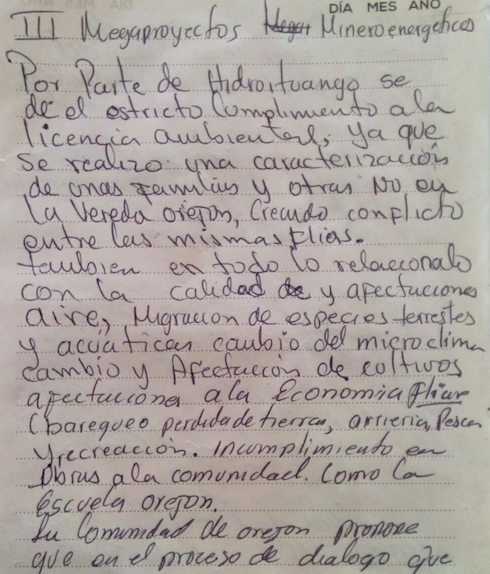 DÍA MES AÑO
III Megaproyectos Mineroenergeticos
Por Parte de Hidroituango se
de el estricto Cumplimiento a la
licencia ambiental, ya que
se realizo una caracterización
de unas familias y otras No en
la Vereda orejon, Creando conflicto
entre las mismas flias.
tambien en todo lo relacionado
con la calidad de y afectaciones
aire, Migración de especies terrestes
y acuaticas cambio del microclima
cambio y Afectación de cultivos
afectaciones a la Economia fliar
(barequeo perdida de tierras, arrieria, Pesca
y recreación. incumplimiento en
obras a la comunidad. Como la
Escuela orejon.
La Comunidad de orejon propone
que en el proceso de dialogo que